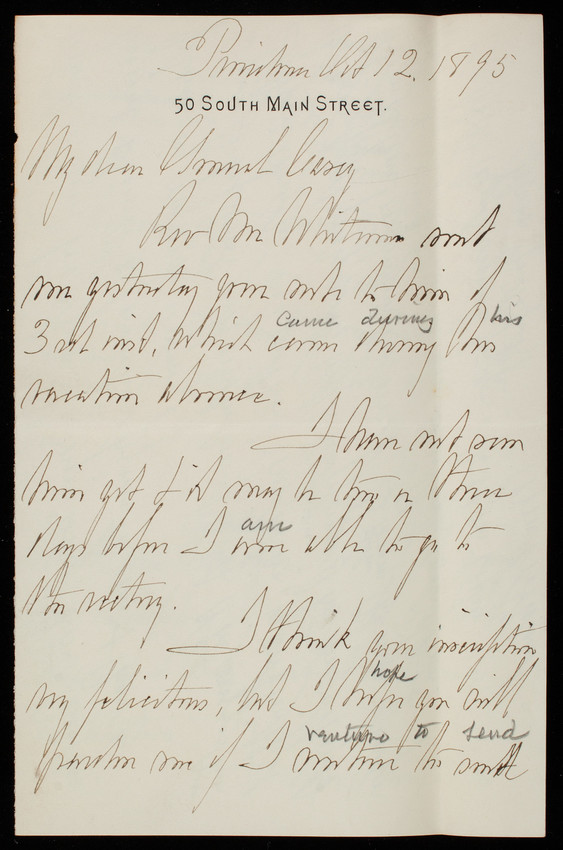 Oct 12. 1895
50 SOUTH MAIN STREET.
My dear General Casey
Rev Mr Whitman sent
me yesterday your note to him of
came during his
3rd inst, which came during his
vacation absence.
I have not seen
him yet & it may be two or three
am
days before I am able to go to
the rectory.
I think your inscription
very felicitous, but I hope you will
hope
venture to send
pardon me if I venture to send